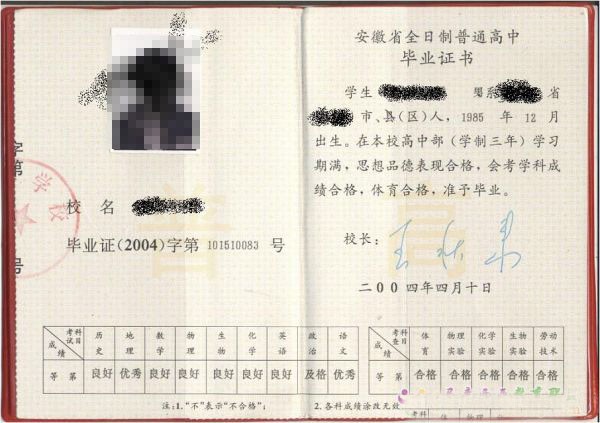 字第
号
学校
校 名
毕业证(2004)字第 101510083 号
考试科目 历史 地理 数学 物理 生物 化学 英语 政治 语文
成绩
等 第 良好 优秀 良好 良好 良好 良好 良好 及格 优秀
注:1.“不”表示“不合格”;
安徽省全日制普通高中
毕业证书
学生 男系 省
市、县(区)人, 1985 年 12 月
出生。在本校高中部(学制三年)学习
期满,思想品德表现合格,会考学科成
绩合格,体育合格,准予毕业。
校长:
二00四年四月十日
考查科目 体育 物理实验 化学实验 生物实验 劳动技术
成绩
等 第 合格 合格 合格 合格 合格
2.各科成绩涂改无效